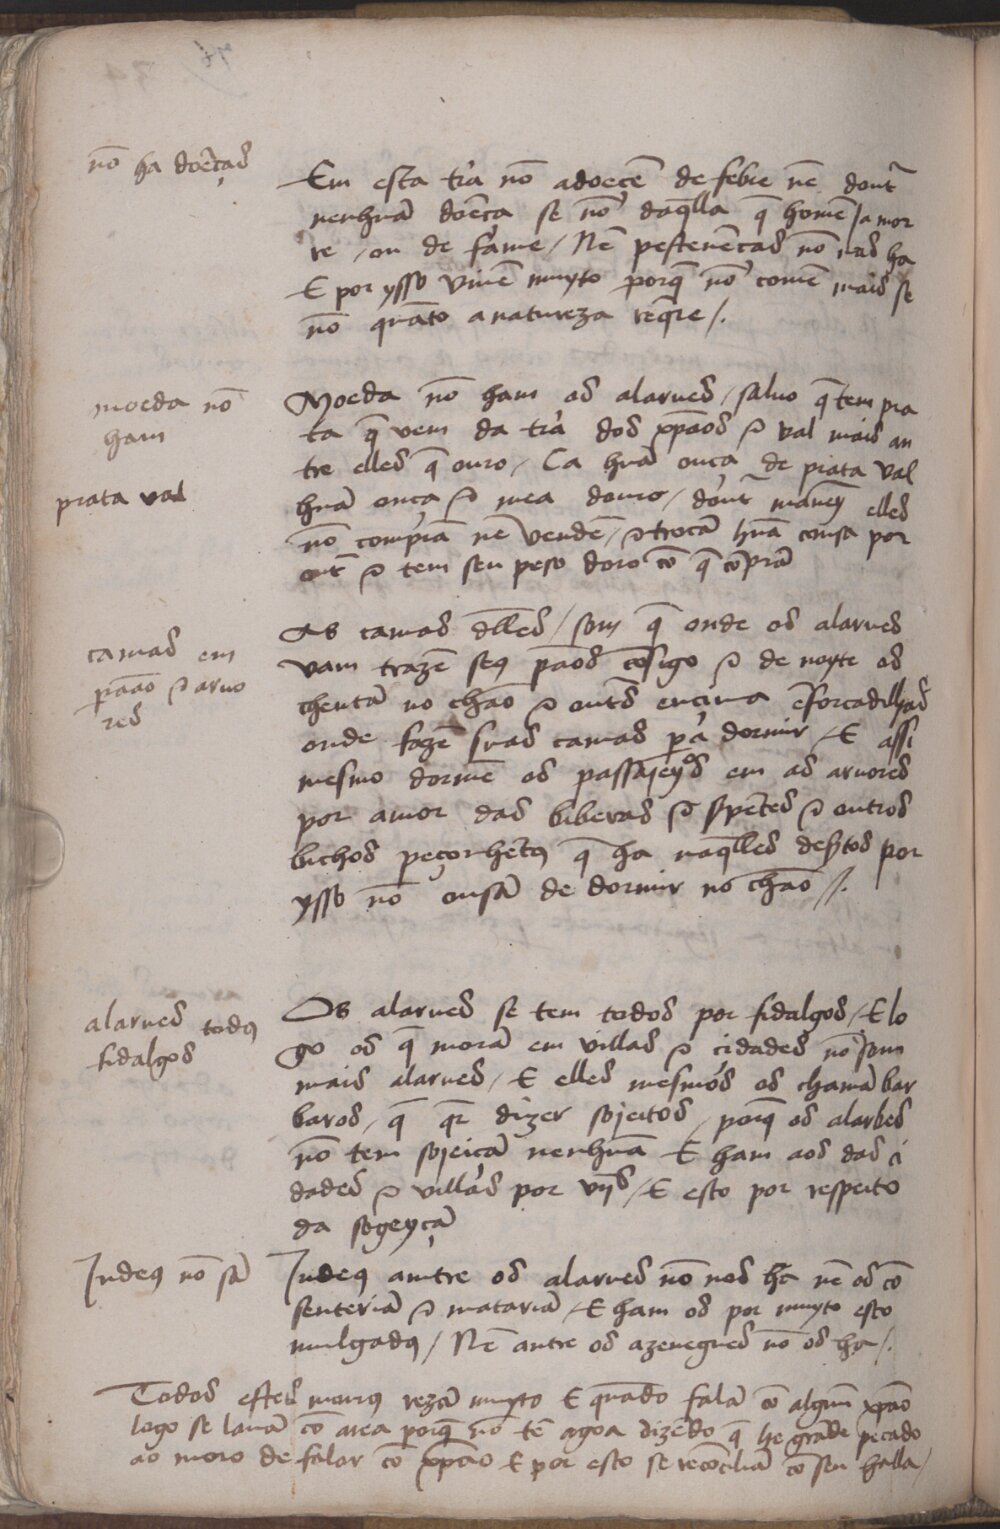 nõ ha doẽças
Em esta trá nõ adoeçẽ de febre nẽ dout͂
nenhuã doẽça se nõ daq̃lla q̃ homẽ / a mor
re / ou de fame / Nẽ pestenẽcas nõ nas ha
E por ysso viuẽ muyto porq̃ nõ comẽ mais se
nõ quãto a natureza req̃re /.
moeda nõ
ham
Moeda nõ ham os alarues / saluo q̃ tem pra
ta q̃ vem da trá dos xpãos ⁊ val mais an
tre elles q̃ ouro / Ca huã onça de prata val
prata val
huã onça ⁊ mea douro / dout͂ maney elles
nõ comprã nẽ vendẽ / ⁊ trocã huã cousa por
out͂ ⁊ tem seu peso doro cõ q̃ cõprã
camas em
pããο ⁊ aruo
res
As camas dlles / som q̃ onde os alarues
vam trazẽ seus pãos cõsigo ⁊ de noyte os
chentã no chão ⁊ outs encima ẽforcadilhas
onde fazẽ suas camas pá dormir / E assi
mesmo dormẽ os passajeyos em as aruores
por amor das biberas ⁊ spẽtes ⁊ outros
bichos peçonhẽtos q̃ ha naq̃lles destos por
ysso nõ ousã de dormir no chão //.
alarues todos
fidalgos
Os alarues se tem todos por fidalgos / E lo
go os q̃ morã em villas ⁊ çidades nõ som
mais alarues / E elles mesmos os chamã bar
baros / q̃ qr̃ dizer sojeitos / porq̃ os alarbes
nõ tem sojeiçã nenhuã E ham aos das çi
dades ⁊ villas por vijs / E esto por respeito
da sogeyçã
Judeus nõ sã
Judeus antre os alarues nõ nos ha nẽ os cõ
senteriã ⁊ matariã / E ham os por muyto esco
mulgados / Nẽ antre os azenegues nõ os ha /.
Todos estes mouros rezã muyto E quãdo falã cõ algum xpão
logo se lauã cõ area porq̃ nõ tẽ agoa dizẽdo q̃ he grãde pecado
ao moro de falar cõ xpão E por esto se recõciliã cõ seu halla /